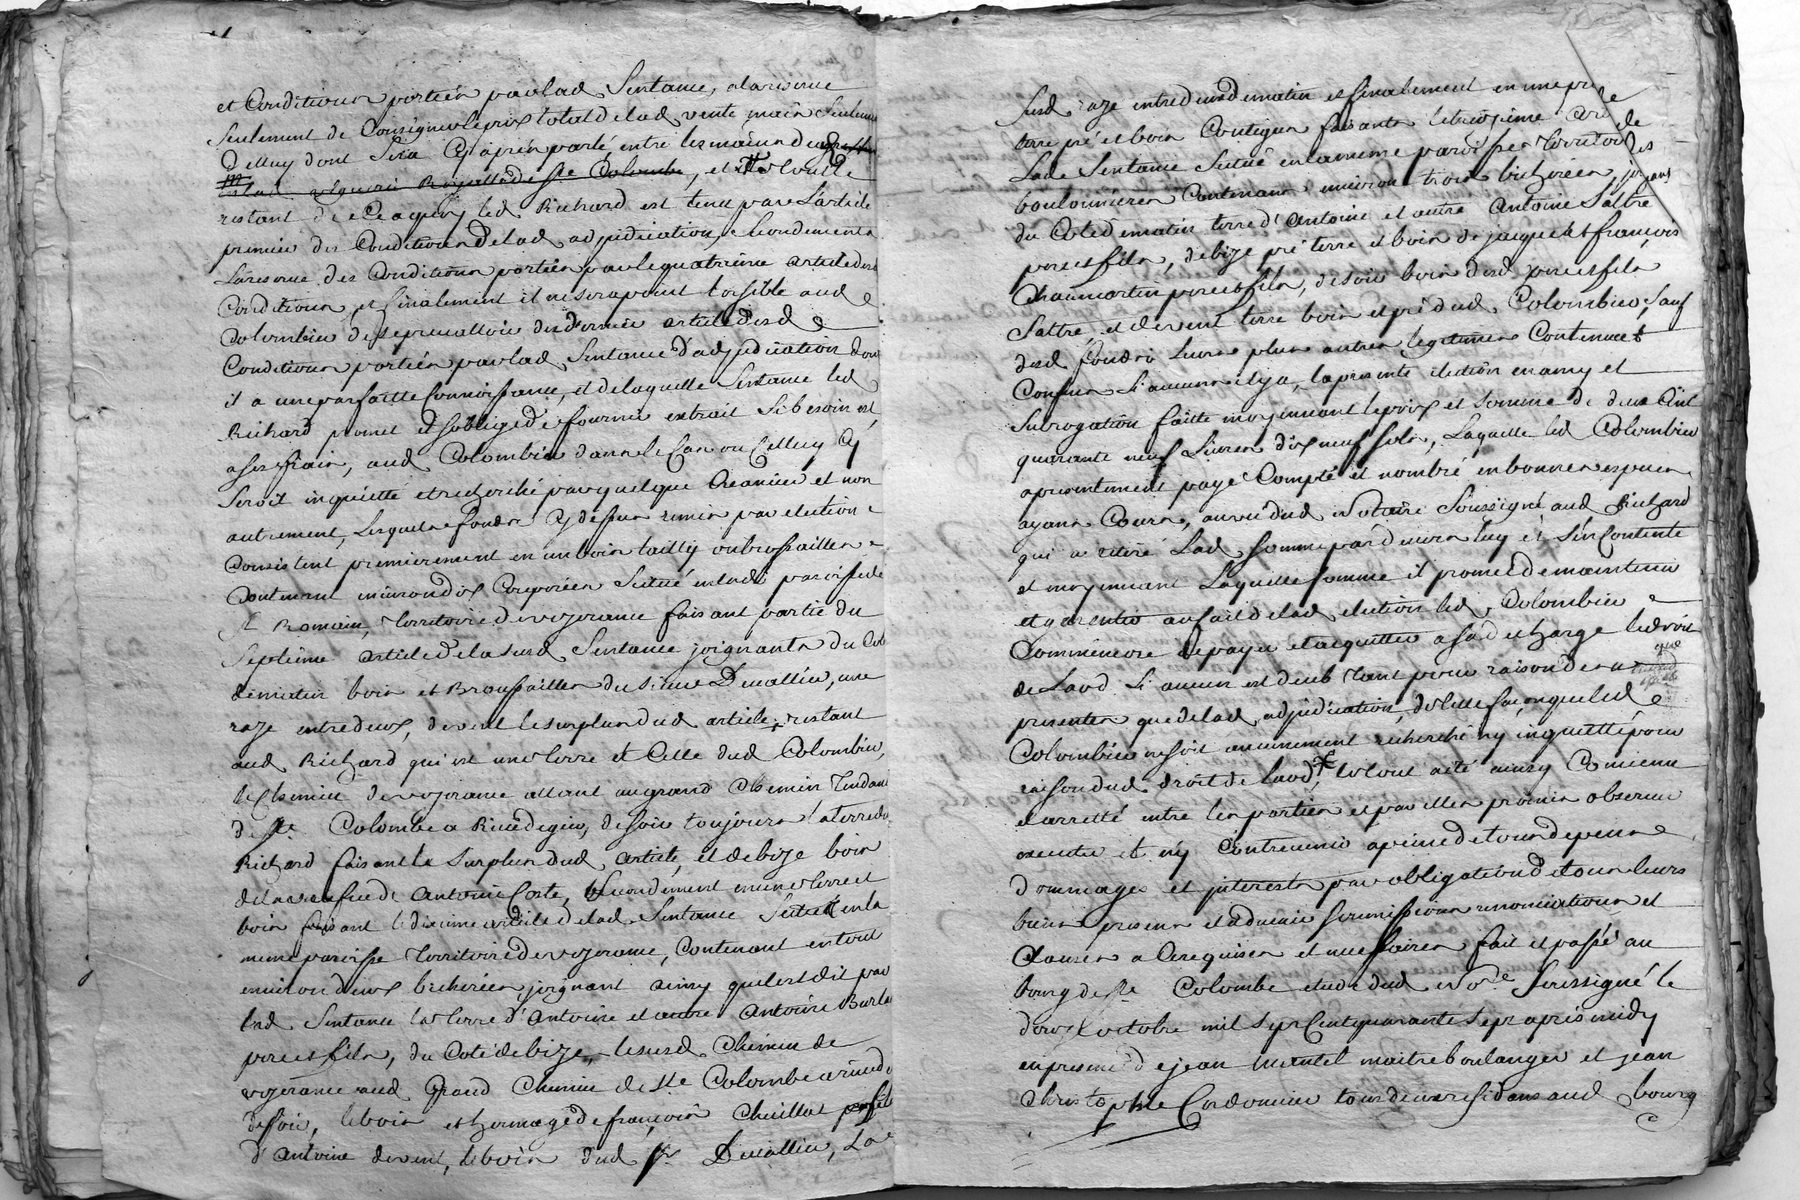 et Conditions portées par lad. Sentance, a la reserve
Seulement de Consigner le prix total de lad. vente mais Seulement
Celluy dont Sera Cy après parlé entre les mains du greffier
Royalle de Ste Colombe, et
restant de ce a quoy led. Richard est tenu par L'article
premier des Conditions de lad. adjudication, Secondement a
La reserve des Conditions portées par le quatrième article desd.
Conditions, et finalement il ne sera point loisible aud.
Colombier de se prevalloir du dernier article desd.
Conditions portées par lad. Sentance d'adjudication dont
il a une parfaitte Connoissance, et de laquelle Sentance led.
Richard promet et s'oblige de fournir extrait Si besoin est
a ses frais, aud. Colombier dans le Cas ou Celluy Cy
Seroit inquietté et recherché par quelque Creancier et non
autrement, Lesquels fonds Cy dessus remis par election
Consistent premierement en un bois tailly ou brossailles
Contenant environ dix Couponées Scitué en lad. parroisse de
St Romain, territoire de vezerance faisant partie du
Septième article de la susd. Sentance joignants du Coté
de matin bois et Broussailles du sieur Devallin, une
raze entre deux, de vent le surplus dud. article, restant
aud. Richard qui est une terre et Celle dud. Colombier,
le Chemin de vezerance allant au grand Chemin Tendant
de Ste Colombe a Rivedegier, de soir toujours la terre dud.
Richard faisant le Surplus dud. article, et de bize bois
de la veufve de Antoine Corte, Secondement en une terre et
bois faisant le dixième article de lad. Sentance Scitué en la
meme paroisse Territoire de vezerance, Contenant en tout
environ deux bicherées, joignant ainsy quil est dit par
lad. Sentance la terre d'Antoine et autre Antoine Burlat
pere et fils, du Coté de bize, le susd. Chemin de
vezerance aud. Grand Chemin de Ste Colombe a rivedegier
de soir, le bois et hermage de françois Chuillat fils
d'Antoine de vent, le bois dud. Sr. Devallin, La
Susd. raze entre deux de matin et finalement en une piece
terre pré et bois Contigus faisants le treizième article de
Lade Sentance Scitué en la meme paroisse territoire des
boulonnieres Contenans environ trois bicherées, joignans
du Coté de matin terre d'Antoine et autre Antoine Sattre
pere et fils, de bize pré terre et bois de jacques et françois
Chaumartin pere et fils, de soir bois desd. pere et fils
Sattre, et de vent terre bois et pré dud. Colombier, Sauf
desd. fonds Leurs plus autres legitimes Contenuës
Confins Si aucuns il y a, la presente election en amy et
Subrogation faitte moyennant le prix et somme de deux Cent
quarante neuf Livres dix neuf sols, Laquelle led. Colombier
a presentement payé Compté et nombré en bonnes especes
ayans Cours, au vu dud. Notaire Soussigné aud. Richard
qui a retiré Lad. somme par devers luy et s'en Contente
et moyennant Laquelle somme il promet de maintenir
et garentir au fait de lad. election led. Colombier
Comme encore de payer et acquitter a sa decharge le droit
de Laod Si aucun est deub tant pour raison des
presentes que de lad. adjudication, de telle façon que led.
Colombier ne soit aucunement recherché ny inquietté pour
raison dud. droit de laod, le tout a été ainsy Convenu
et arretté entre les parties et par elles promis observer
executer et n'y Contrevenir a peine de tous depens
dommages et interests par obligation de tous leurs
biens presens et advenir soumissions renonciations et
Clauses a Ce requises et necessaires fait et passé au
bourg de Ste Colombe etude dud. Nore Soussigné le
deux octobre mil sept Cent quarante sept après midy
en presence de jean Mantel maitre boulanger et jean
Christophle Cordonnier tous deux residans aud. bourg